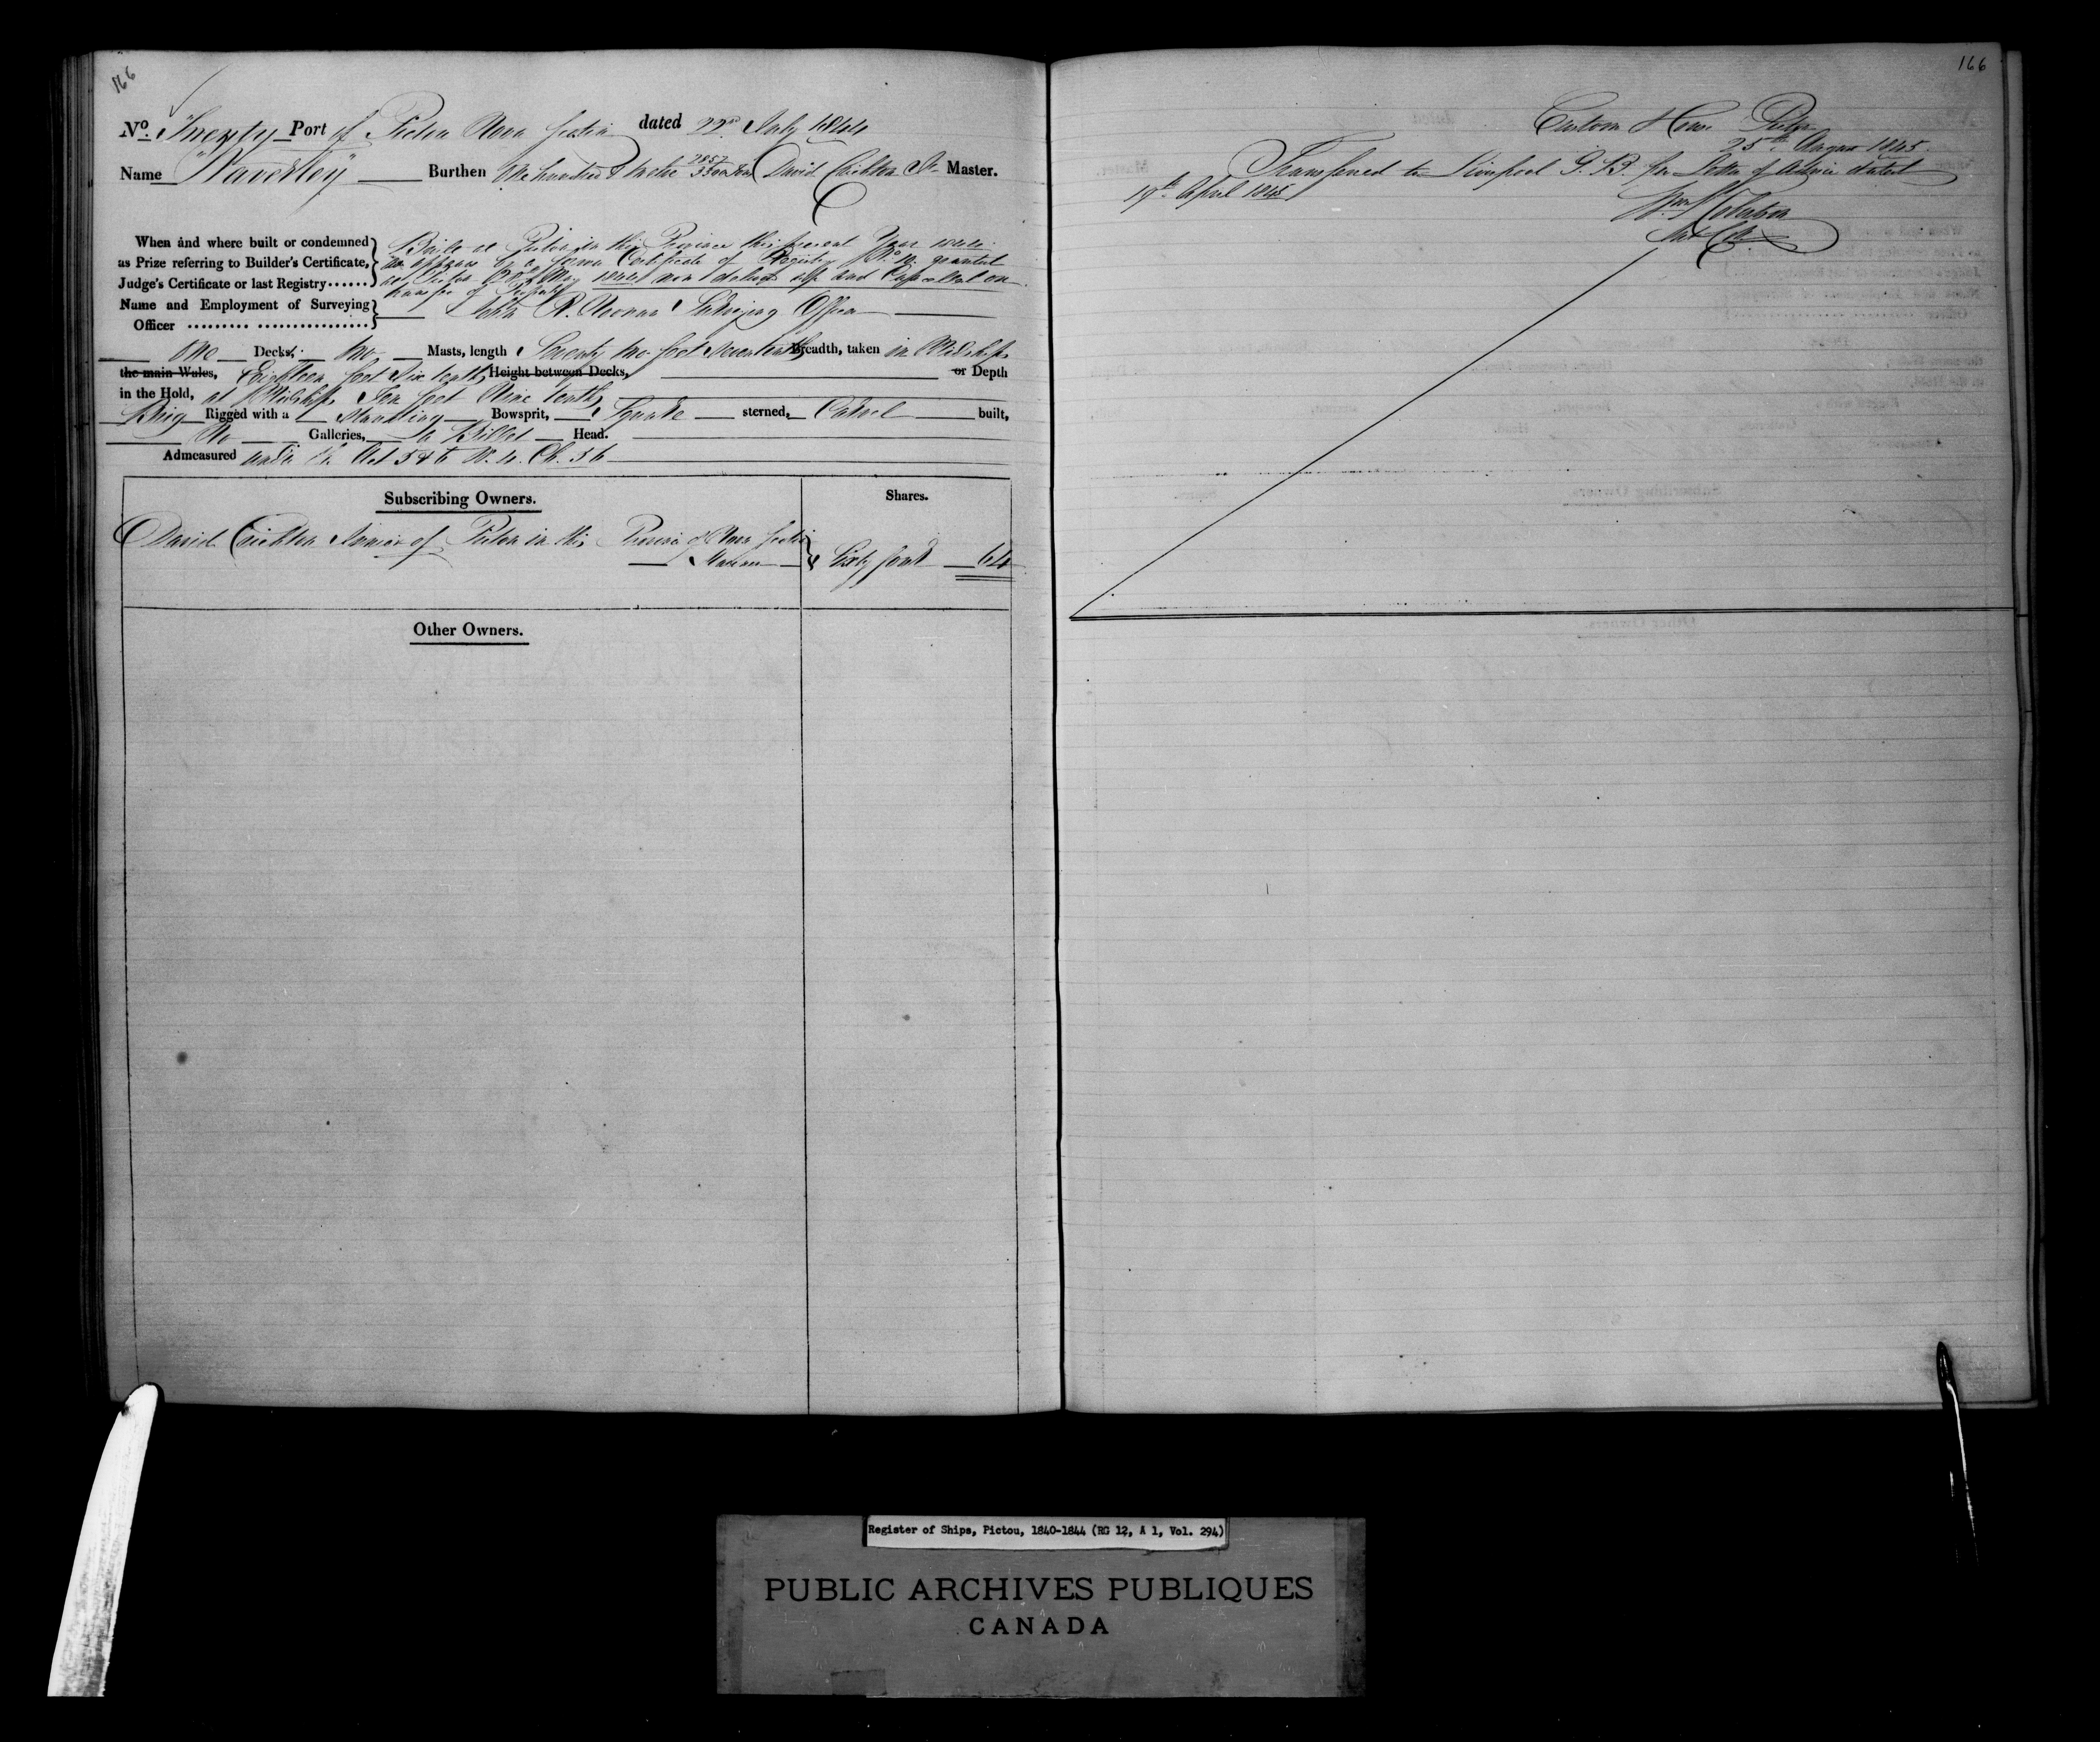 166
No. Twenty Port of Pictou Nova Scotia dated 22nd July 1844
Name "Waverley" Burthen One hundred & twelve 2857/3500 tons David Crichton Jr Master.
When and where built or condemned as Prize referring to Builder's Certificate, Judge's Certificate or last Registry......
Built at Pictou in this Province this present Year 1844
as appears by a former Certificate of Registry No. granted
at Pictou May 1844 now delivered up and Cancelled on
transfer of Property
Name and Employment of Surveying Officer ......... .................
John R. Noonan Surveying Officer
One Decks, two Masts, length Seventy two feet seven tenths Breadth, taken in Midships
the main Wales, Eighteen feet six tenths Height between Decks, or Depth
in the Hold, at Midships Ten feet Nine tenths
Brig Rigged with a Standing Bowsprit, Square sterned, Carvel built,
No Galleries, a Billet Head.
Admeasured under the Act 5 & 6 W. 4. Ch. 56
Subscribing Owners.
Shares.
David Crichton Junior of Pictou in this Province of Nova Scotia
Mariner
Sixty four 64
Other Owners.
166
Custom House Pictou
25th August 1845.
Transferred to Liverpool G.B. per Letter of Advice dated
19th April 1845
Register of Ships, Pictou, 1840-1844 (RG 12, A 1, Vol. 294)
PUBLIC ARCHIVES PUBLIQUES
CANADA